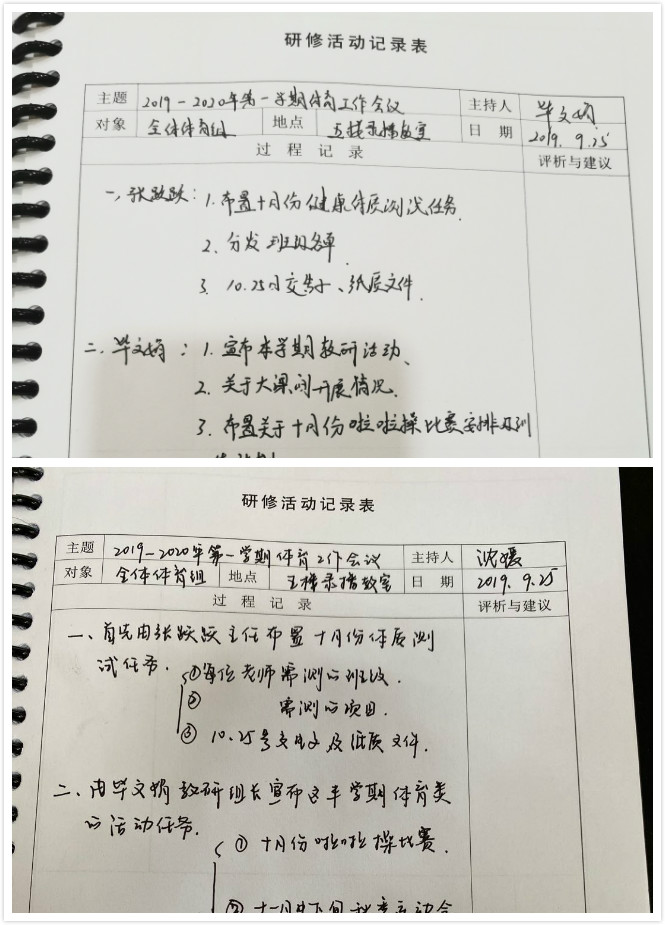 研修活动记录表
主题 2019-2020年第一学期体育工作会议 主持人 毕文娟
对象 全体体育组 地点 五楼录播教室 日期 2019.9.25
过程记录 评析与建议
一、张跃跃：1.布置十月份健康体质测试任务.
2.分发班级名单.
3.10.25日交电子、纸质文件.
二、毕文娟：1.宣布本学期教研活动、
2.关于大课间开展情况.
3.布置关于十月份啦啦操比赛安排及训
研修活动记录表
主题 2019-2020年第一学期体育工作会议 主持人 沈媛
对象 全体体育组 地点 五楼录播教室 日期 2019.9.25
过程记录 评析与建议
一、首先由张跃跃主任布置十月份体质测
试任务.①每位老师需测的班级.
② 需测的项目.
③ 10.25号交电子及纸质文件.
二、由毕文娟教研组长宣布这半学期体育类
的活动任务.
① 十月份啦啦操比赛.
② 十一月中下旬秋季运动会